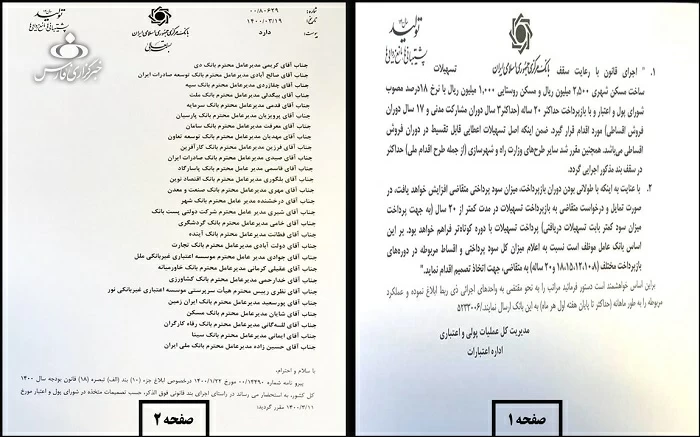 شماره: ۰۰/۸۰۶۲۹
تاریخ: ۱۴۰۰/۰۳/۱۹
پیوست: دارد
بانک مرکزی جمهوری اسلامی ایران
بسمه تعالی
تولید
پشتیبانی‌ها، مانع‌زدایی‌ها
خبرگزاری فارس
جناب آقای کریمی مدیرعامل محترم بانک دی
جناب آقای صالح آبادی مدیرعامل محترم بانک توسعه صادرات ایران
جناب آقای چقازردی مدیرعامل محترم بانک سپه
جناب آقای بیگدلی مدیرعامل محترم بانک ملت
جناب آقای قدمی مدیرعامل محترم بانک سرمایه
جناب آقای پرویزیان مدیرعامل محترم بانک پارسیان
جناب آقای معرفت مدیرعامل محترم بانک سامان
جناب آقای مهدیان مدیرعامل محترم بانک توسعه تعاون
جناب آقای فرزین مدیرعامل محترم بانک کارآفرین
جناب آقای صیدی مدیرعامل محترم بانک صادرات ایران
جناب آقای قاسمی مدیرعامل محترم بانک پاسارگاد
جناب آقای یلگوری مدیرعامل محترم بانک اقتصاد نوین
جناب آقای مهری مدیرعامل محترم بانک صنعت و معدن
جناب آقای درخشنده مدیر عامل محترم بانک شهر
جناب آقای شیری مدیر عامل محترم شرکت دولتی پست بانک
جناب آقای خامی مدیرعامل محترم بانک گردشگری
جناب آقای فطانت مدیرعامل محترم بانک آینده
جناب آقای دولت آبادی مدیرعامل محترم بانک تجارت
جناب آقای جوادی مدیر عامل محترم موسسه اعتباری غیربانکی ملل
جناب آقای عقیلی کرمانی مدیرعامل محترم بانک خاورمیانه
جناب آقای خدارحمی مدیرعامل محترم بانک کشاورزی
جناب آقای نظری رییس محترم هیأت سرپرستی موسسه اعتباری غیربانکی نور
جناب آقای پورسعید مدیرعامل محترم بانک ایران زمین
جناب آقای شایان مدیرعامل محترم بانک مسکن
جناب آقای لله‌گانی مدیرعامل محترم بانک رفاه کارگران
جناب آقای ایمانی مدیرعامل محترم بانک سینا
جناب آقای حسین زاده مدیرعامل محترم بانک ملی ایران
با سلام و احترام،
پیرو نامه شماره ۰۰/۱۳۲۹۰ مورخ ۱۴۰۰/۱/۲۲ درخصوص ابلاغ جزء (۱۰) بند (الف) تبصره (۱۸) قانون بودجه سال ۱۴۰۰
کل کشور، به استحضار می رساند در راستای اجرای بند قانونی فوق الذکر، حسب تصمیمات متخذه در شورای پول و اعتبار مورخ
۱۴۰۰/۳/۱۱ مقرر گردید:
صفحه ۲
تولید
پشتیبانی‌ها، مانع‌زدایی‌ها
بانک مرکزی جمهوری اسلامی ایران
۱. " اجرای قانون با رعایت سقف تسهیلات
ساخت مسکن شهری ۲,۵۰۰ میلیون ریال و مسکن روستایی ۱,۰۰۰ میلیون ریال با نرخ ۱۸درصد مصوب
شورای پول و اعتبار و با بازپرداخت حداکثر ۲۰ ساله (حداکثر۳ سال دوران مشارکت مدنی و ۱۷ سال دوران
فروش اقساطی) مورد اقدام قرار گیرد. ضمن اینکه اصل تسهیلات اعطایی قابل تقسیط در دوران فروش
اقساطی می‌باشد. همچنین مقرر شد سایر طرح‌های وزارت راه و شهرسازی (از جمله طرح اقدام ملی) حداکثر
در سقف بند مذکور اجرایی گردد.
۲. با عنایت به اینکه با طولانی بودن دوران بازپرداخت، میزان سود پرداختی متقاضی افزایش خواهد یافت، در
صورت تمایل و درخواست متقاضی به بازپرداخت تسهیلات در مدت کمتر از ۲۰ سال (به جهت پرداخت
میزان سود کمتر بابت تسهیلات دریافتی) پرداخت تسهیلات با دوره کوتاه‌تر فراهم خواهد بود. بر این
اساس بانک عامل موظف است نسبت به اعلام میزان کل سود پرداختی و اقساط مربوطه در دوره‌های
بازپرداخت مختلف (۱۸،۱۵،۱۲،۱۰،۸ و ۲۰ ساله) به متقاضی، جهت اتخاذ تصمیم اقدام نمایند."
براین اساس خواهشمند است دستور فرمائید مراتب را به نحو مقتضی به واحدهای اجرائی ذی ربط ابلاغ نموده و عملکرد
مربوطه را به طور ماهانه (حداکثر تا پایان هفته اول هر ماه) به این بانک ارسال نمایند./۵۲۳۳۰۰۶
مدیریت کل عملیات پولی و اعتباری
اداره اعتبارات
صفحه ۱